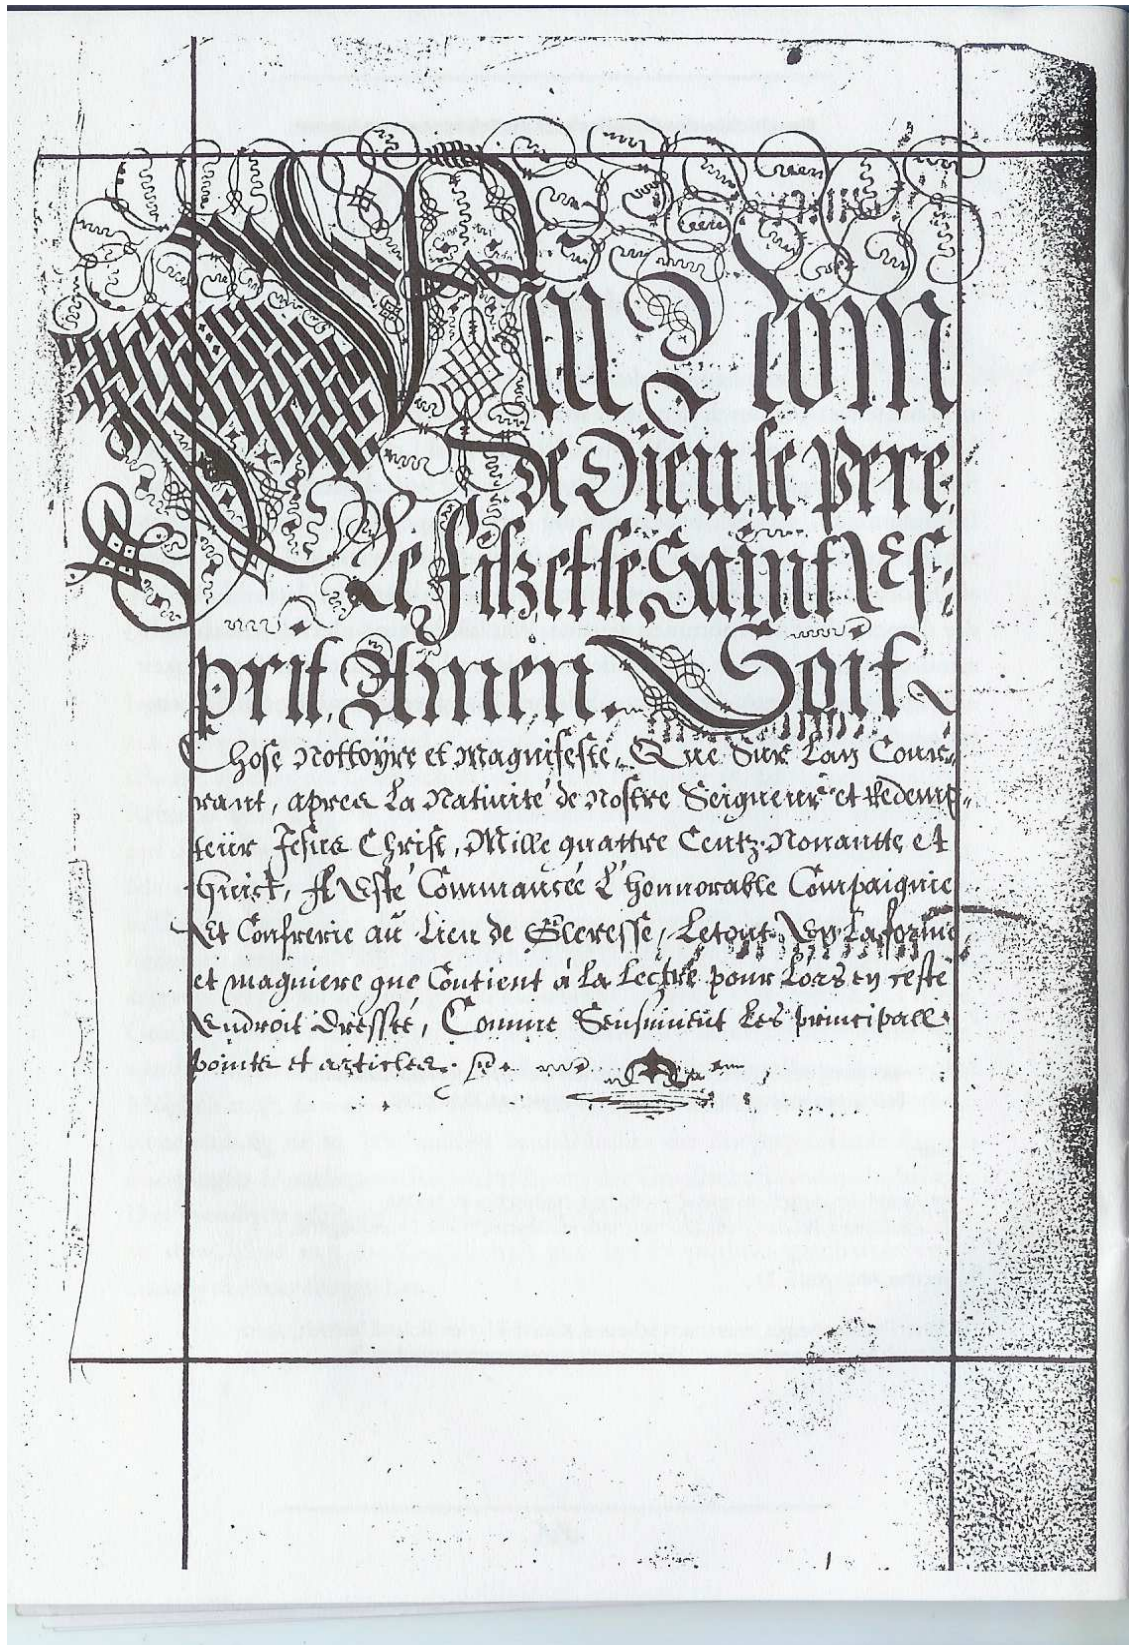 Au Nom
de Dieu le pere,
Le Filz et le Saint Es-
prit, Amen. Soit
Chose Nottoyre et Magnifeste, Que Sur Lan Cour-
rant, apres La Natiuité de Nostre Seigneur et Redemp-
teur Jesus Christ, Mille quattre Centz Nonantte et
huict, A Esté Commancée L'honnorable Compaignie
Et Confrerie au Lieu de Gleresse, Le tout En La forme
et magniere que Contient à La Lectre pour Lors en ceste
Endroit dressée, Comme Sensuiuent Les principall
points et articles.